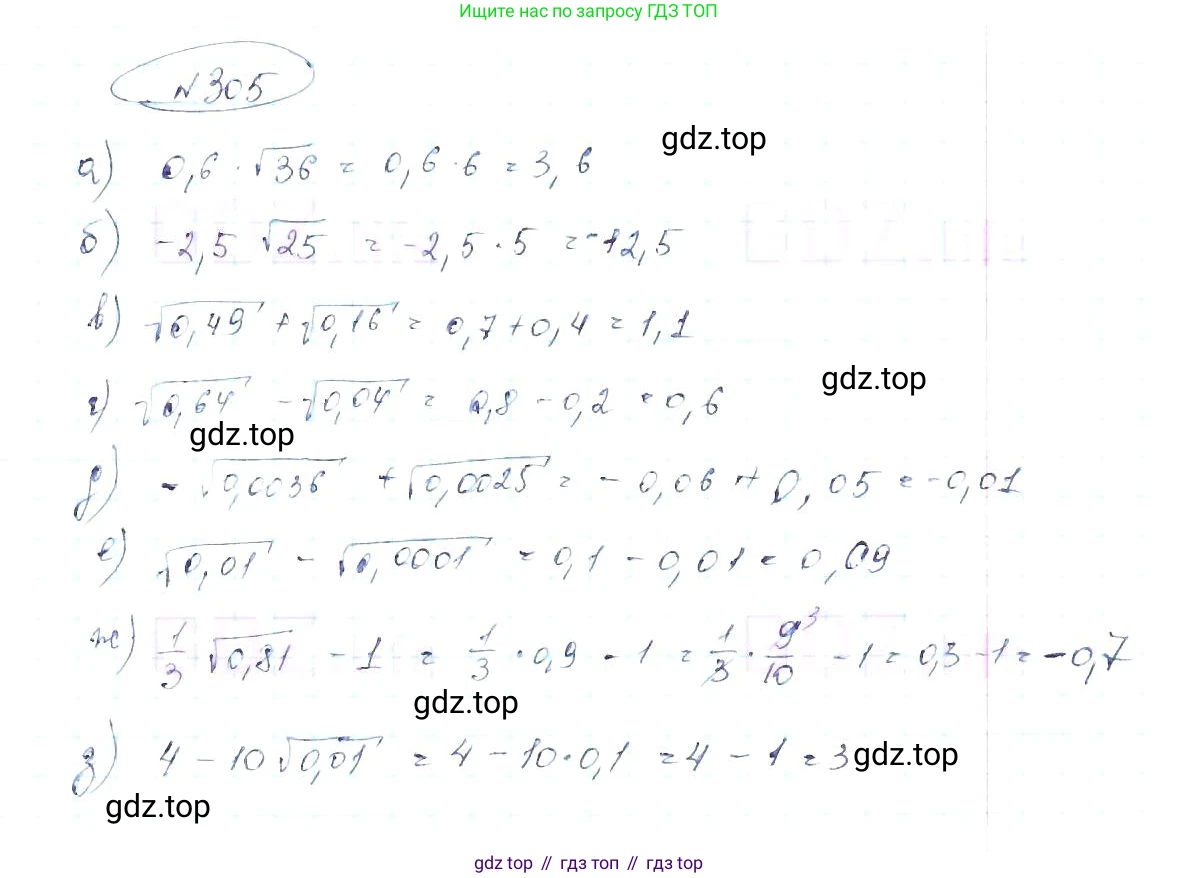 Ищите нас по запросу ГДЗ ТОП
№305
gdz.top
а) 0,6 · √36 = 0,6 · 6 = 3,6
б) -2,5 √25 = -2,5 · 5 = -12,5
в) √0,49 + √0,16 = 0,7 + 0,4 = 1,1
gdz.top
г) √0,64 - √0,04 = 0,8 - 0,2 = 0,6
gdz.top
д) - √0,0036 + √0,0025 = - 0,06 + 0,05 = -0,01
е) √0,01 - √0,0001 = 0,1 - 0,01 = 0,09
ж) 1/3 √0,81 - 1 = 1/3 · 0,9 - 1 = 1/3 · 9³/10 - 1 = 0,3 - 1 = -0,7
gdz.top
з) 4 - 10 √0,01 = 4 - 10 · 0,1 = 4 - 1 = 3
gdz.top
gdz.top
gdz top // гдз топ // гдз top